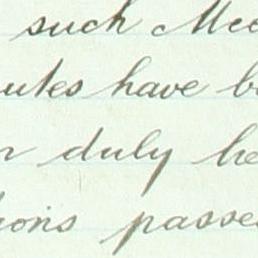 such Mee
utes have b
duly he
ions passe